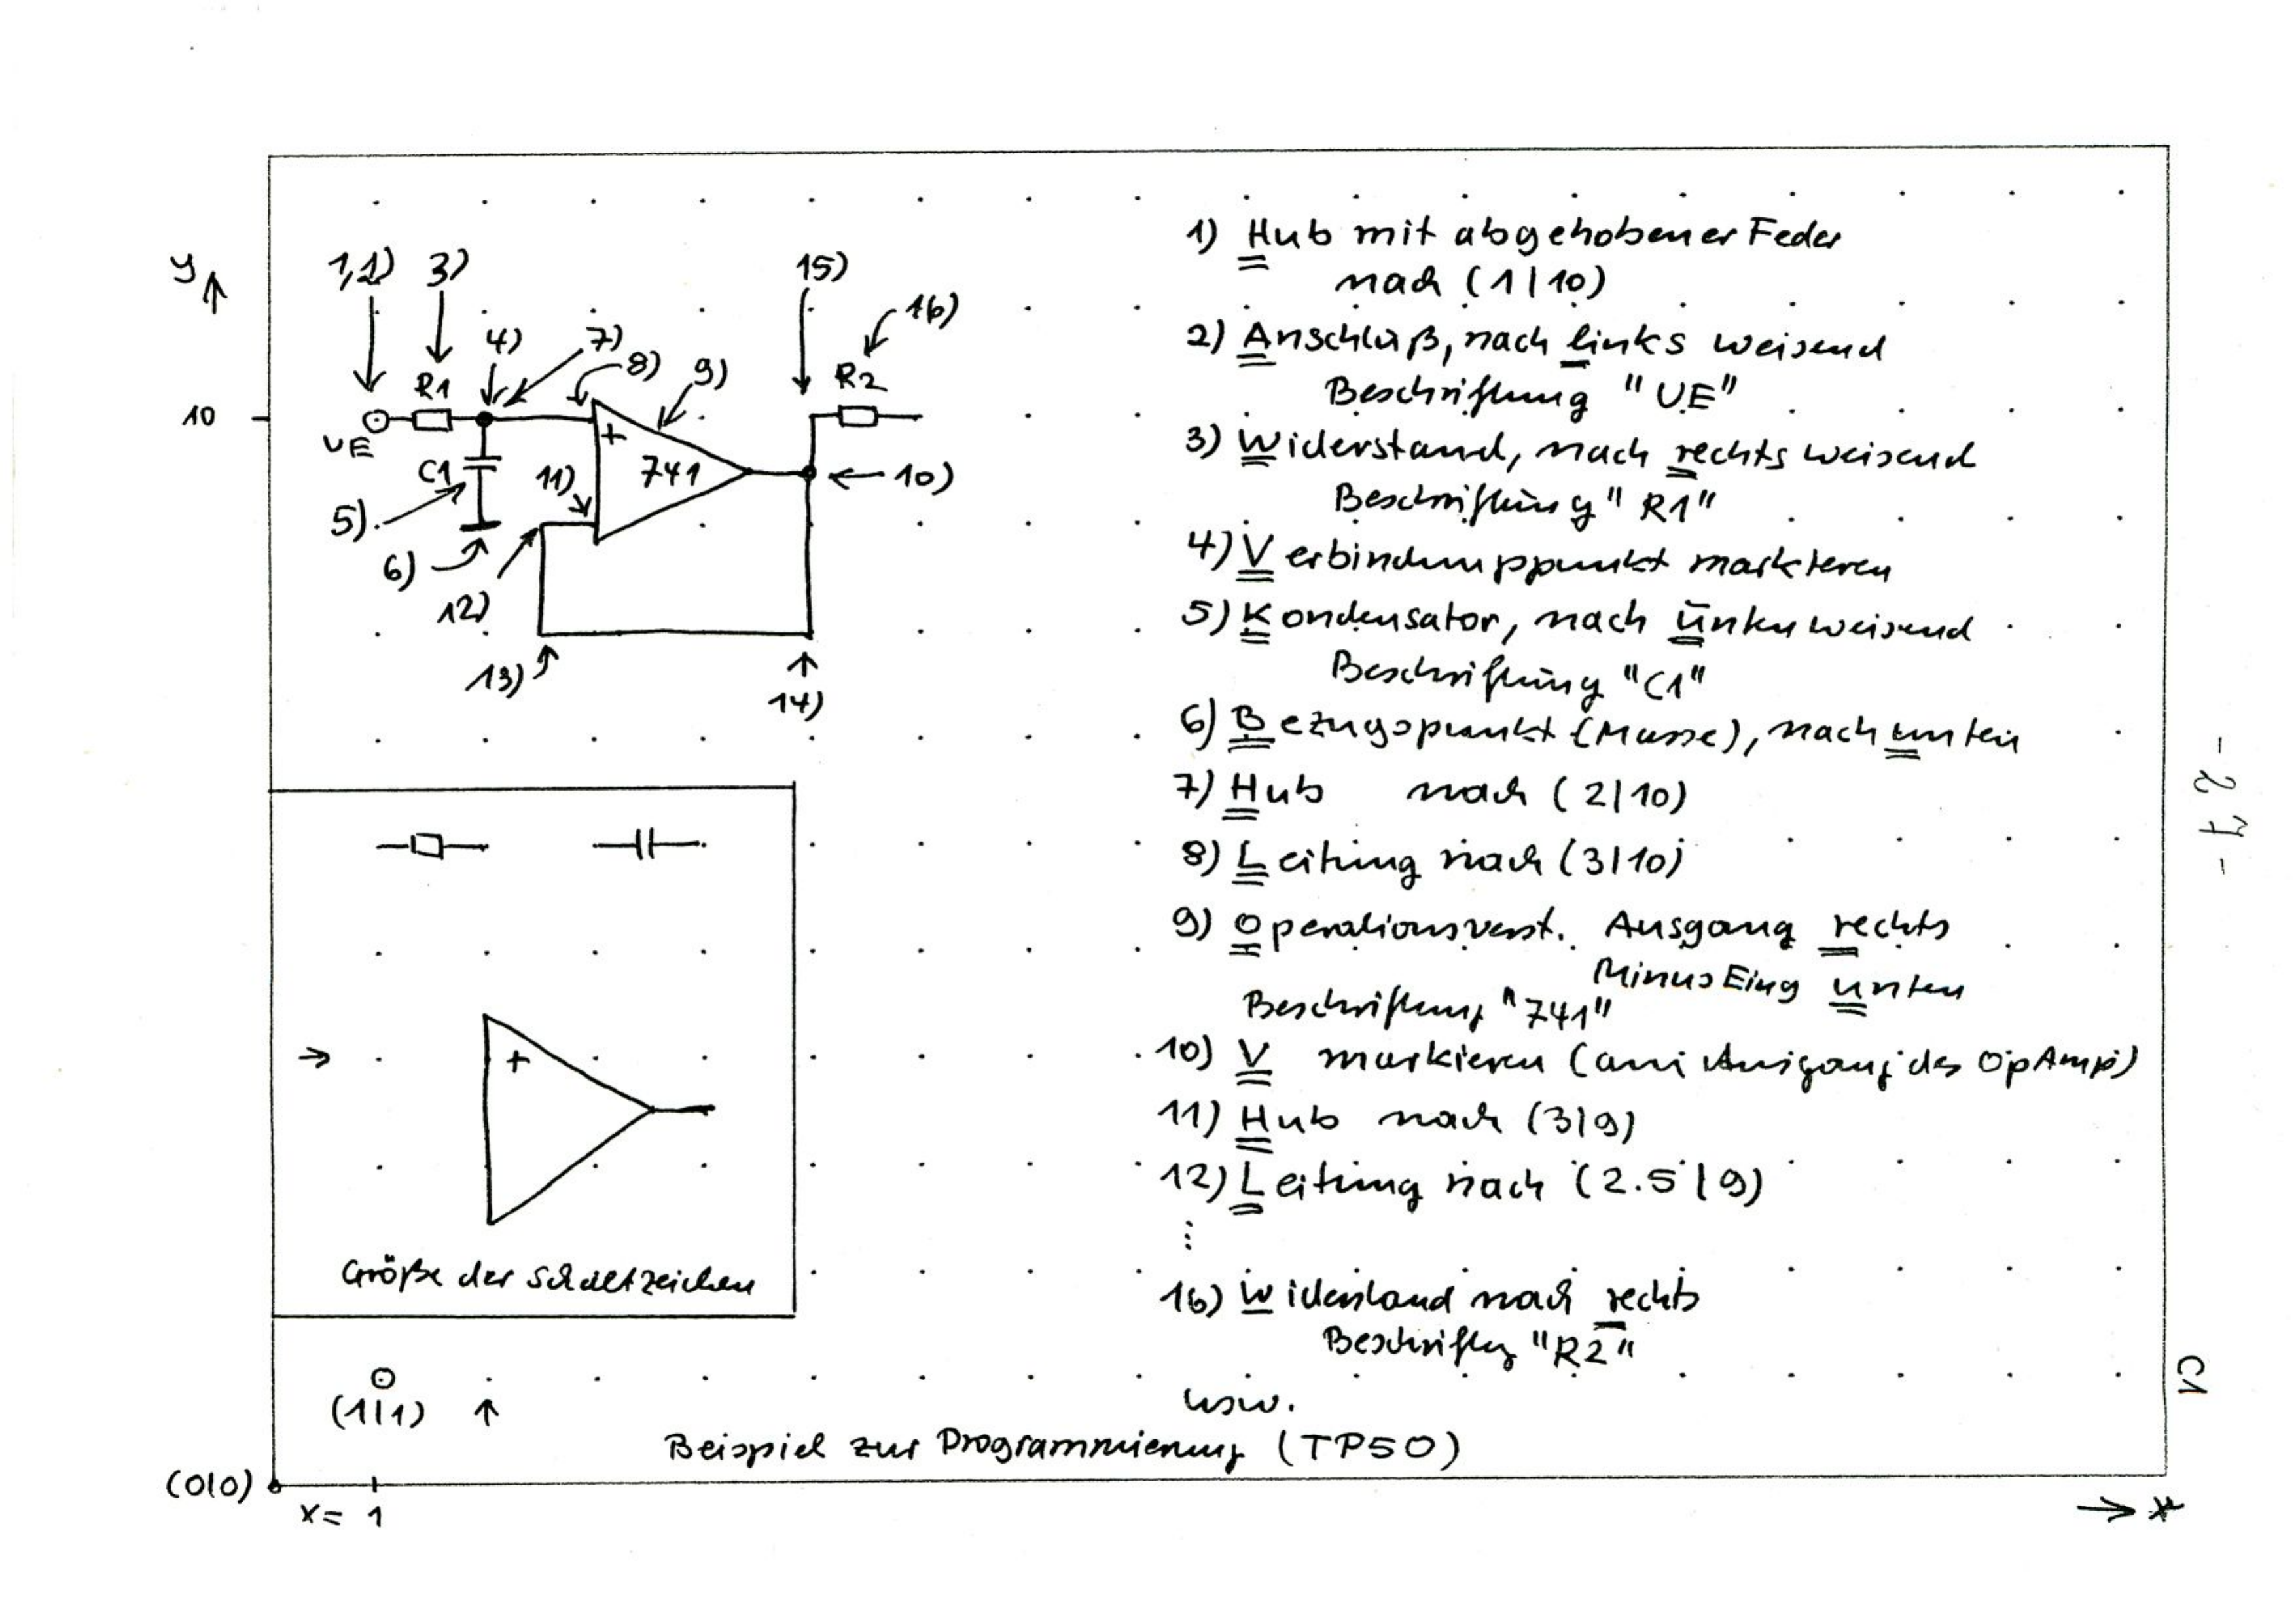 y
1,2)
3)
15)
16)
4)
7)
8)
9)
R1
R2
10
UE
+
741
C1
11)
10)
5)
6)
12)
13)
14)
+
Größe der Schaltzeichen
(1|1)
(0|0)
x= 1
1) Hub mit abgehobener Feder
nach (1|10)
2) Anschluß, nach links weisend
Beschriftung "UE"
3) Widerstand, nach rechts weisend
Beschriftung "R1"
4) Verbindungspunkt markieren
5) Kondensator, nach unten weisend
Beschriftung "C1"
6) Bezugspunkt (Masse), nach unten
7) Hub nach (2|10)
8) Leitung nach (3|10)
9) Operationsverst. Ausgang rechts
Minus Eing unten
Beschriftung "741"
10) V markieren (am Ausgang des OpAmp)
11) Hub nach (3|9)
12) Leitung nach (2.5|9)
⋮
16) Widerstand nach rechts
Beschriftg "R2"
usw.
Beispiel zur Programmierung (TP50)
x
- 27 -
C1